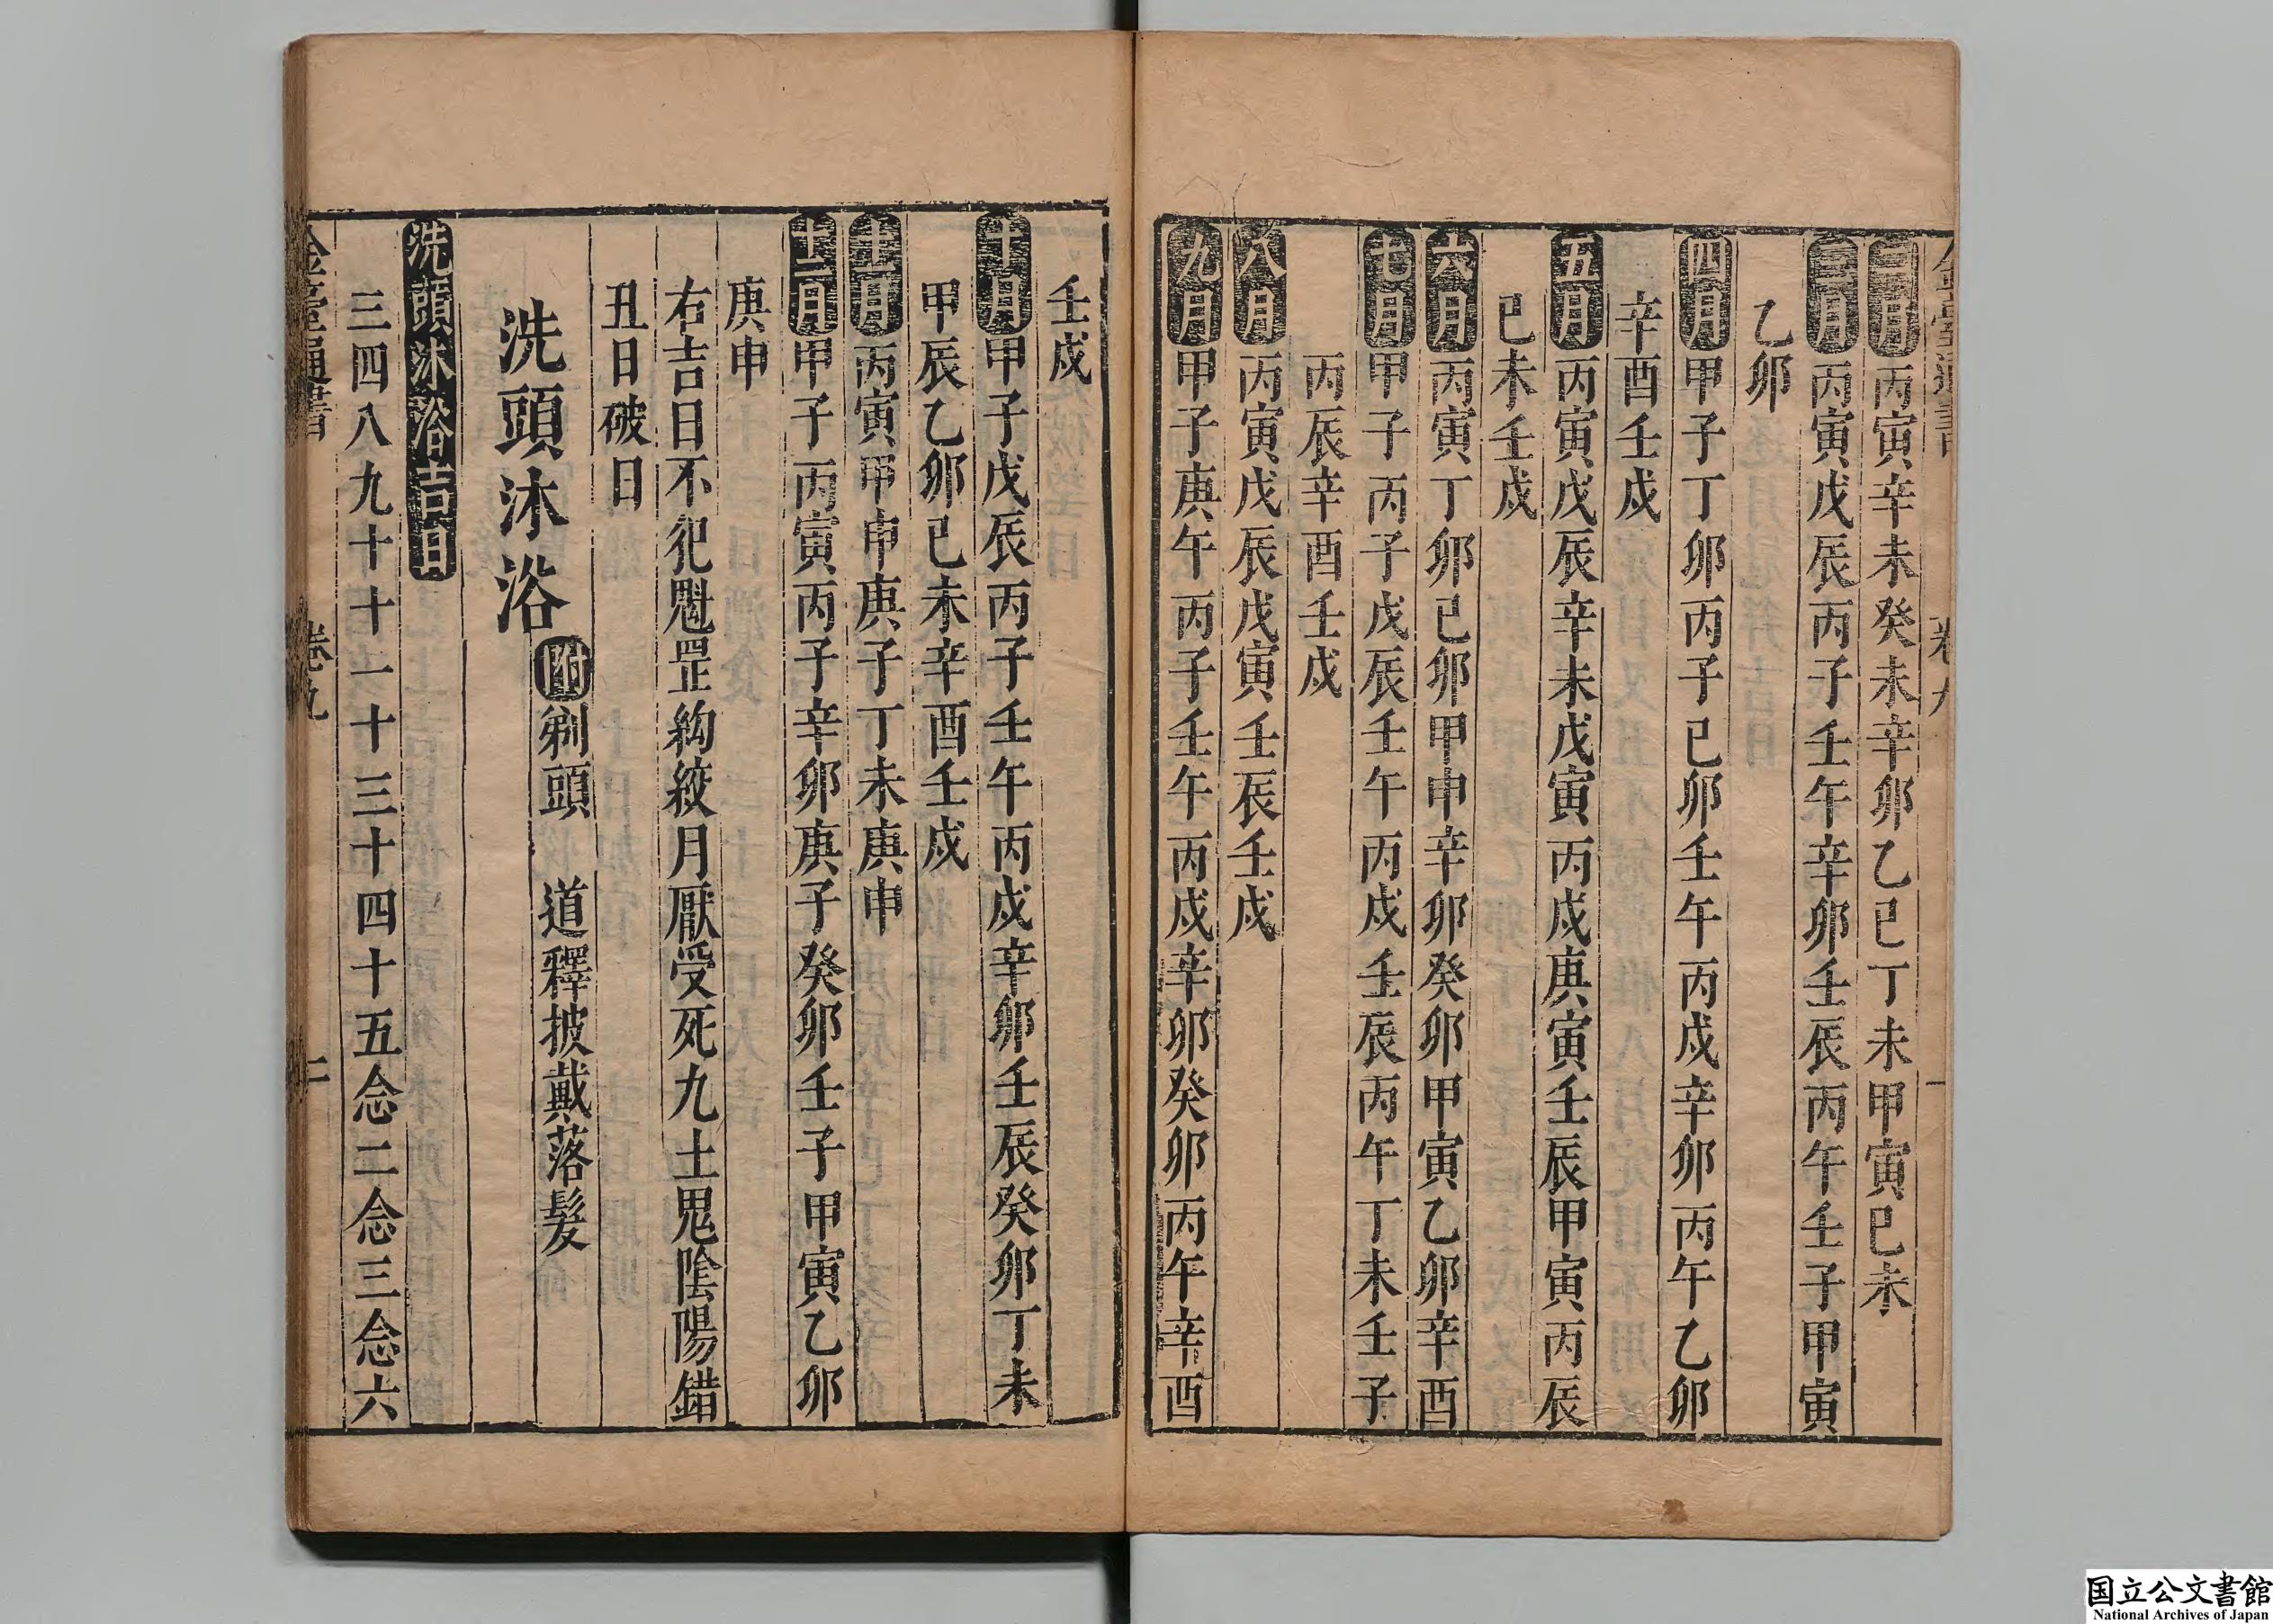 二月丙寅辛未癸未辛卯乙巳丁未甲寅巳未
三月丙寅戊辰丙子壬午辛卯壬辰丙午壬子甲寅
乙卯
四月甲子丁卯丙子已卯壬午丙戌辛卯丙午乙卯
辛酉壬戌
五月丙寅戊辰辛未戊寅丙戌庚寅壬辰甲寅丙辰
已未壬戌
六月丙寅丁卯已卯甲申辛卯癸卯甲寅乙卯辛酉
七月甲子丙子戊辰壬午丙戌壬辰丙午丁未壬子
丙辰辛酉壬戌
八月丙寅戊辰戊寅壬辰壬戌
九月甲子庚午丙子壬午丙戌辛卯癸卯丙午辛酉
壬戌
十月甲子戊辰丙子壬午丙戌辛卯壬辰癸卯丁未
甲辰乙卯已未辛酉壬戌
十一月丙寅甲申庚子丁未庚申
十二月甲子丙寅丙子辛卯庚子癸卯壬子甲寅乙卯
庚申
右吉日不犯魁罡絢絞月厭受死九土鬼陰陽錯
丑日破日
洗頭沐浴
附剃頭 道釋披戴落髮
洗頭沐浴吉日
三四八九十十一十三十四十五念二念三念六
卷九
国立公文書館
National Archives of Japan